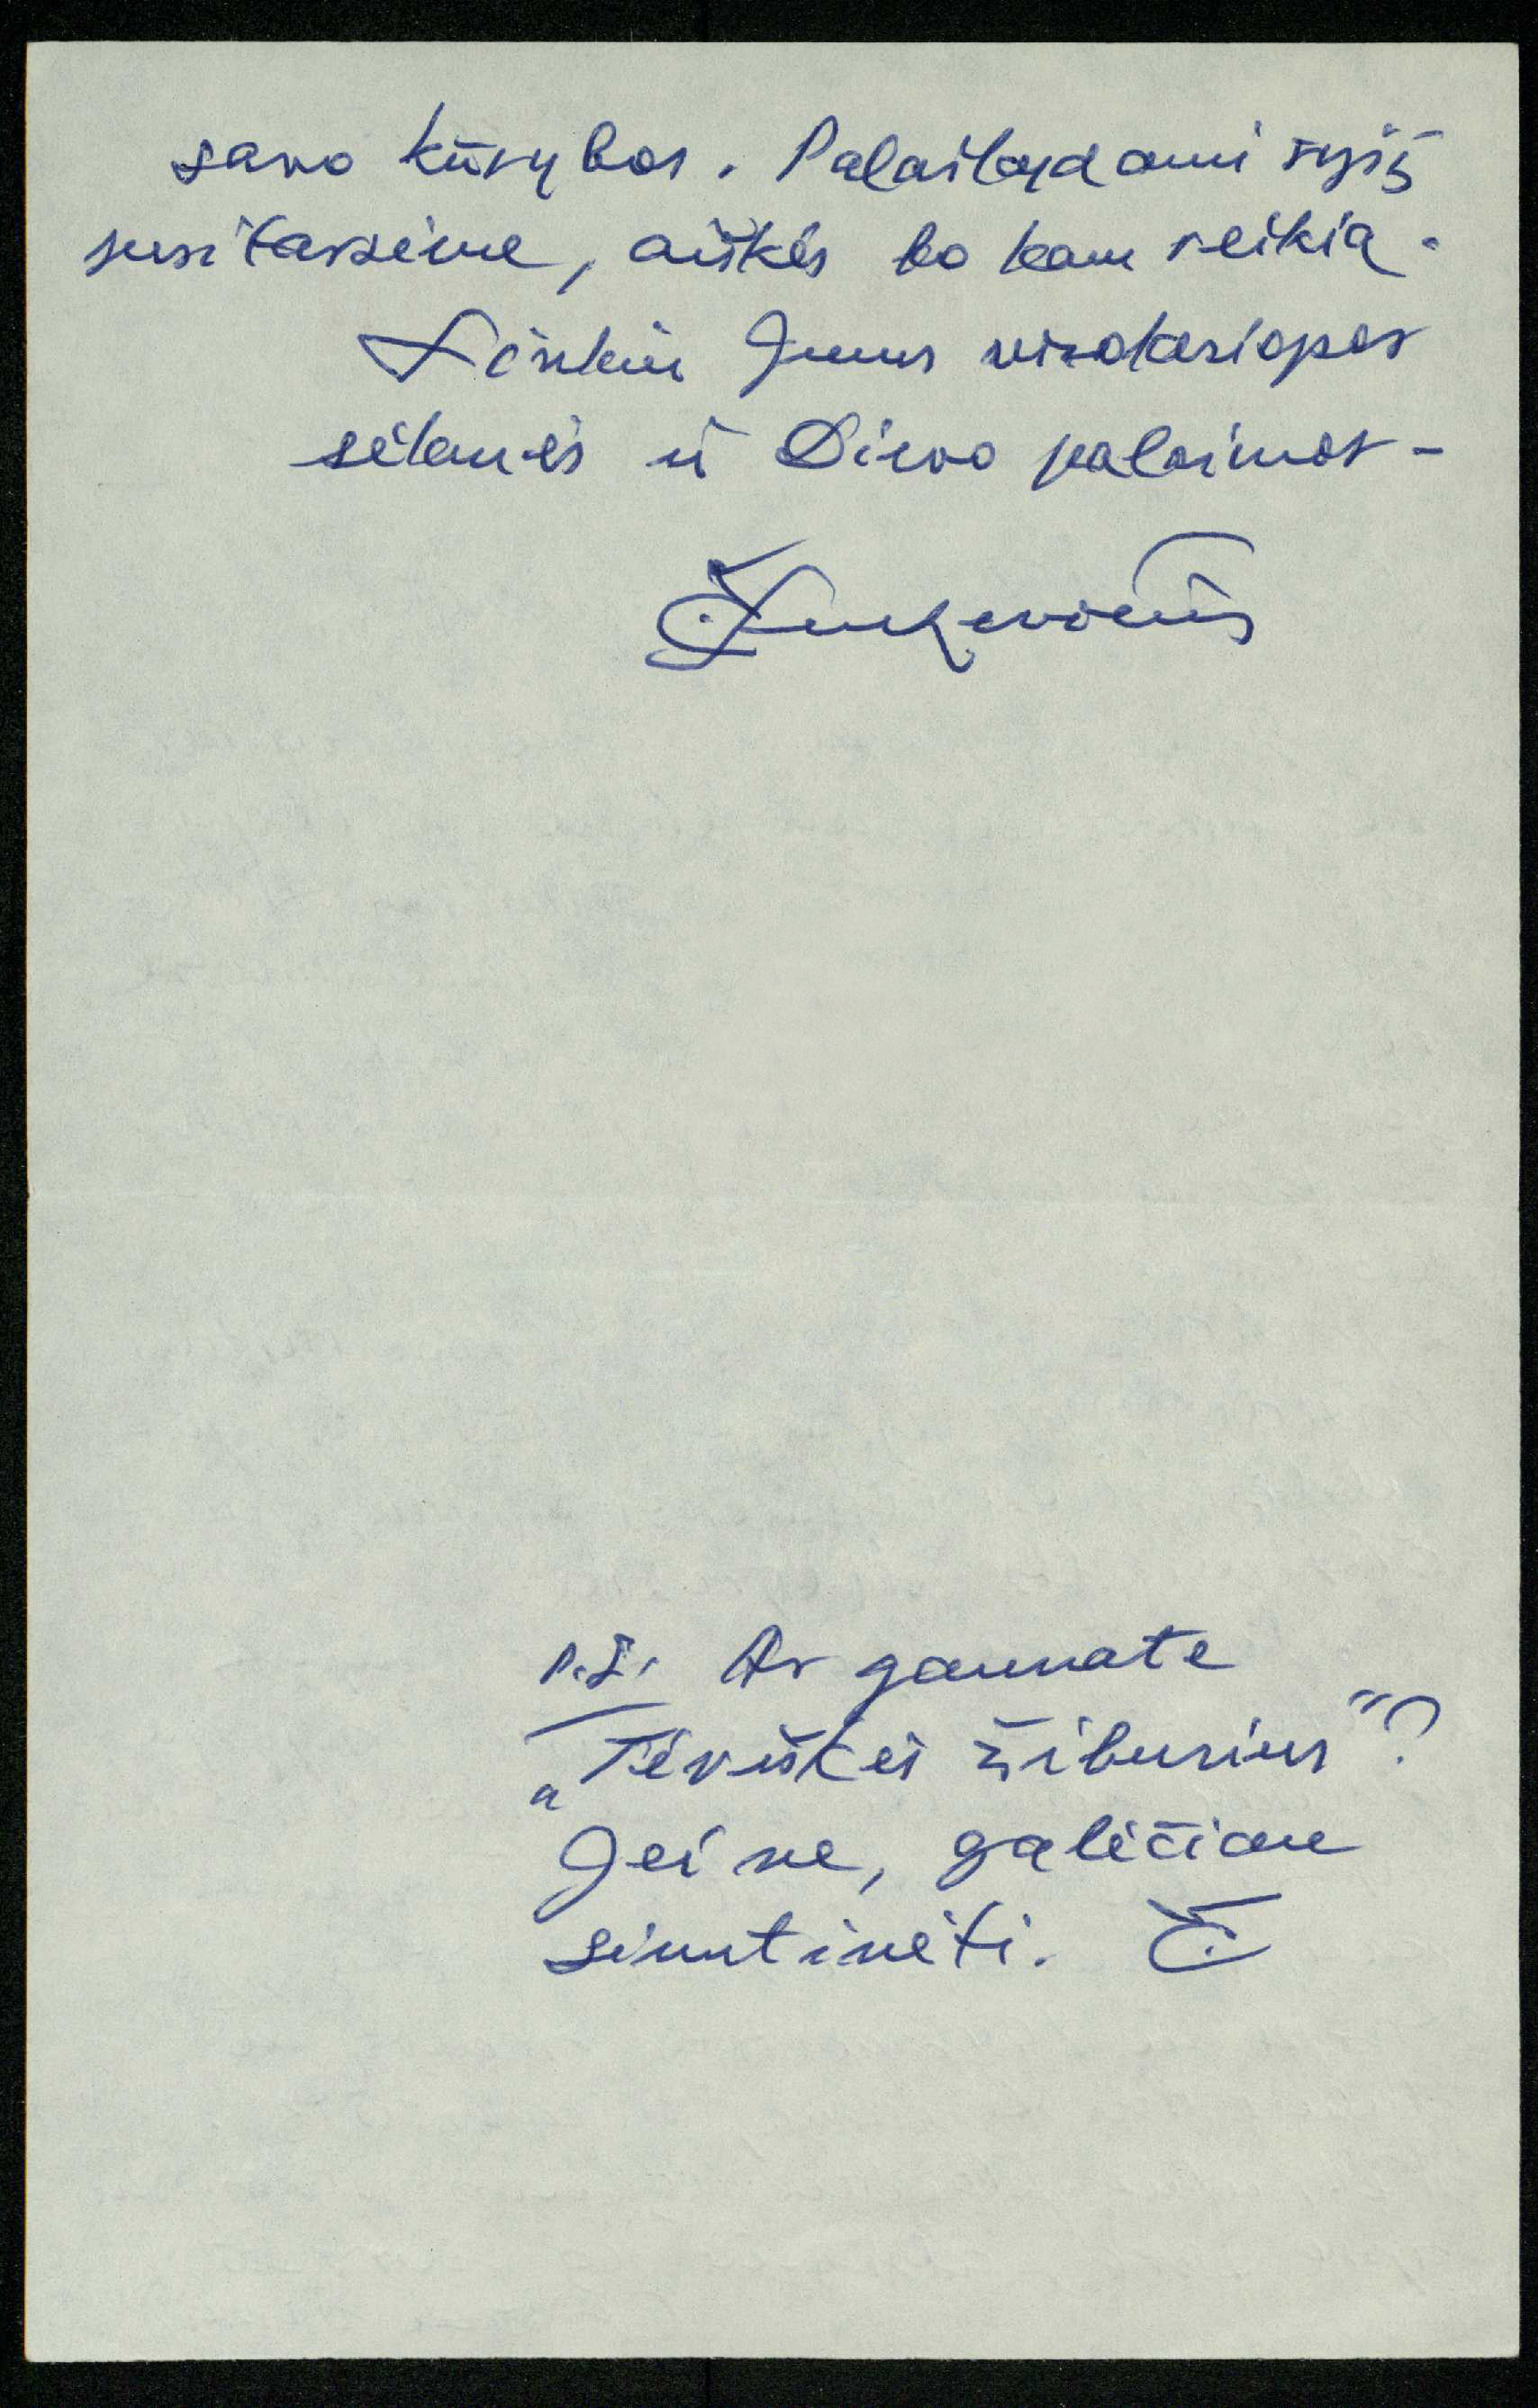 savo kūrybos. Palaikydami ryšį
susitarsime, aiškės ko kam reikia.
Linkiu Jums visokeriopos
sėkmės ir Dievo palaimos -
P.S. Ar gaunate
„Tėviškės žiburius"?
Jei ne, galėčiau
siuntinėti. Č.